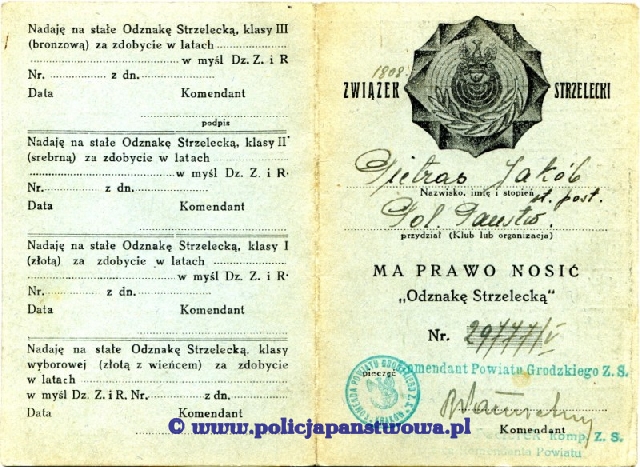 Nadaję na stałe Odznakę Strzelecką, klasy III
(bronzową) za zdobycie w latach
w myśl Dz. Z. i R
Nr. z dn.
Data Komendant
podpis
Nadaję na stałe Odznakę Strzelecką, klasy II
(srebrną) za zdobycie w latach
w myśl Dz. Z. i R.
Nr. z dn.
Data Komendant
Nadaję na stałe Odznakę Strzelecką, klasy I
(złotą) za zdobycie w latach
w myśl Dz. Z. i R.
Nr. z dn.
Data Komendant
Nadaję na stałe Odznakę Strzelecką, klasy
wyborowej (złotą z wieńcem) za zdobycie
w latach
w myśl Dz. Z. i R. Nr. z dn.
Data Komendant
1808
ZWIĄZEK STRZELECKI
Pietras Jakób
Nazwisko, imię i stopień st. post.
Pol. Państw.
przydział (Klub lub organizacja)
MA PRAWO NOSIĆ
„Odznakę Strzelecką"
Nr. 29/77/V
Komendant Powiatu Grodzkiego Z. S.
pieczęć
Komendant
komp. Z. S.
Komendanta Powiatu
© www.policjapanstwowa.pl